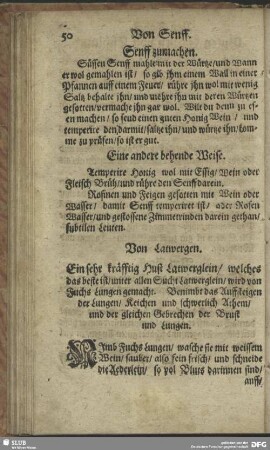 50 Von Senff.
Senff zumachen.
Süssen Senff mahle mit der Würtze/und Wann
er wol gemahlen ist/ so gib ihm einem Wall in einer
Pfannen auff einem Feuer/ rühre ihn wol mit wenig
Saltz behalte ihn/ und mehre ihn mit deren Würtzen
gesotten/vermache ihn gar wol. Wilt du denn zu es-
sen machen/ so seud einen guten Honig Wein/ und
temperire den/darmit/saltze ihn/und würtze ihn/kom-
me zu prüfen/so ist er gut.
Eine andere behende Weise.
Temperire Honig wol mit Essig/Wein oder
Fleisch Brüh/und rühre den Senff darein.
Rosinen und Feigen gesotten mit Wein oder
Wasser/ damit Senff temperiret ist/ oder Rosen
Wasser/und gestossene Zimmetrinden darein gethan/
subtilen Leuten.
Von Latwergen.
Ein sehr kräfftig Hust Latwerglein/ welches
das beste ist/unter allen Sücht Latwerglein/wird von
Fuchs Lungen gemacht. Benimbt das Auffsteigen
der Lungen/ Keichen und schwerlich Athem/
und der gleichen Gebrechen der Brust
und Lungen.
NImb Fuchs Lungen/ wasche sie mit weissem
Wein/ sauber/ also sein frisch/ und schneide
die Aederlein/ so vol Bluts darinnen sind/
auff/
SLUB
DFG